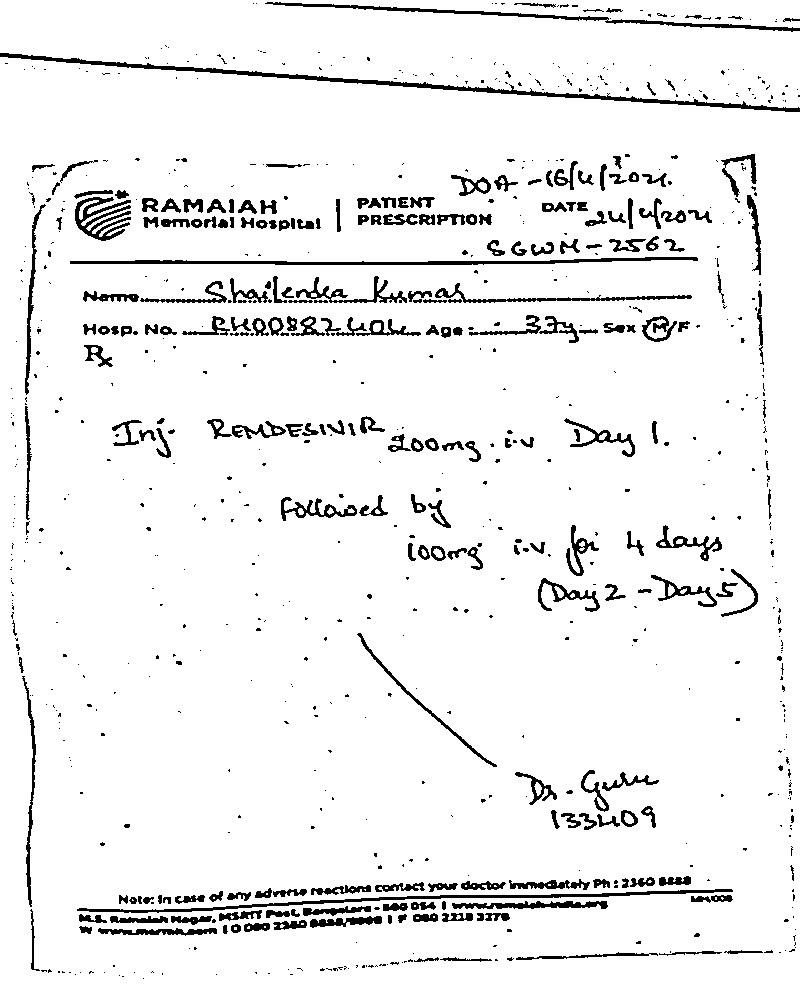 DOA - 16/4/2021.
RAMAIAH
Memorial Hospital
PATIENT
PRESCRIPTION
DATE 24/4/2021
SGWM - 2562
Name Shailendra Kumar
Hosp. No. RH00882404 Age: 37y Sex M/F
Rx
Inj. REMDESIVIR 200mg i.v Day 1.
Followed by
100mg i.v. for 4 days
(Day 2 - Day 5)
Dr. Guru
133409
Note: In case of any adverse reactions contact your doctor immediately Ph : 2360 8888
M.S. Ramaiah Nagar, MSRIT Post, Bangalore - 560 054 | www.ramaiah-india.org
W www.msrmh.com | O 080 2360 8888/9999 | F 080 2218 3276